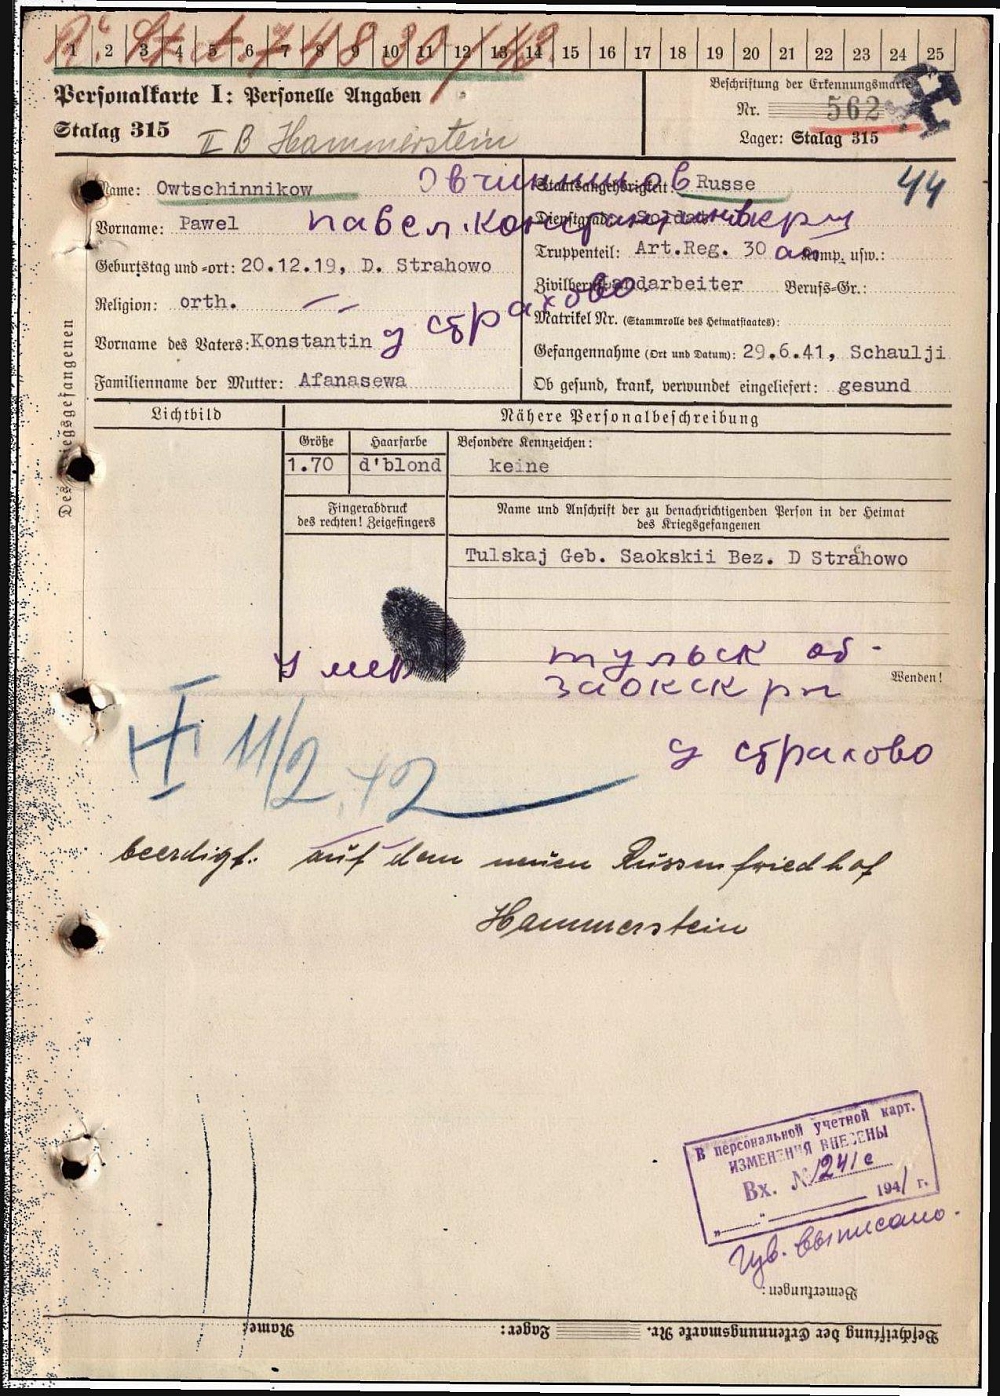 1 2 3 4 5 6 7 8 9 10 11 12 13 14 15 16 17 18 19 20 21 22 23 24 25
Personalkarte I: Personelle Angaben
Stalag 315
II B Hammerstein
Beschriftung der Erkennungsmarke
Nr. 562
Lager: Stalag 315
44
Des Kriegsgefangenen
Name: Owtschinnikow
Овчинников
Staatsangehörigkeit: Russe
Vorname: Pawel
Павел.
Dienstgrad: Soldat
Geburtstag und -ort: 20.12.19, D. Strahowo
Truppenteil: Art.Reg. 30 Komp. usw.:
Religion: orth.
Zivilberuf: Landarbeiter Berufs-Gr.:
д страхово
Matrikel Nr. (Stammrolle des Heimatstaates):
Vorname des Vaters: Konstantin
Gefangennahme (Ort und Datum): 29.6.41, Schaulji
Familienname der Mutter: Afanasewa
Ob gesund, krank, verwundet eingeliefert: gesund
Lichtbild
Nähere Personalbeschreibung
Größe Haarfarbe Besondere Kennzeichen:
1.70 d'blond keine
Fingerabdruck
des rechten! Zeigefingers
Name und Anschrift der zu benachrichtigenden Person in der Heimat
des Kriegsgefangenen
Tulskaj Geb. Saokskii Bez. D Strahowo
умер
тульск об-
Wenden!
заокск рн
11/2 42
д страхово
beerdigt: auf dem neuen Russenfriedhof
Hammerstein
В персональной учетной карт.
ИЗМЕНЕНИЯ ВНЕСЕНЫ
Вх. № 1241с
„ “ 1941 г.
выписано.
Bemerkungen:
Beschriftung der Erkennungsmarke Nr. Lager: Name: